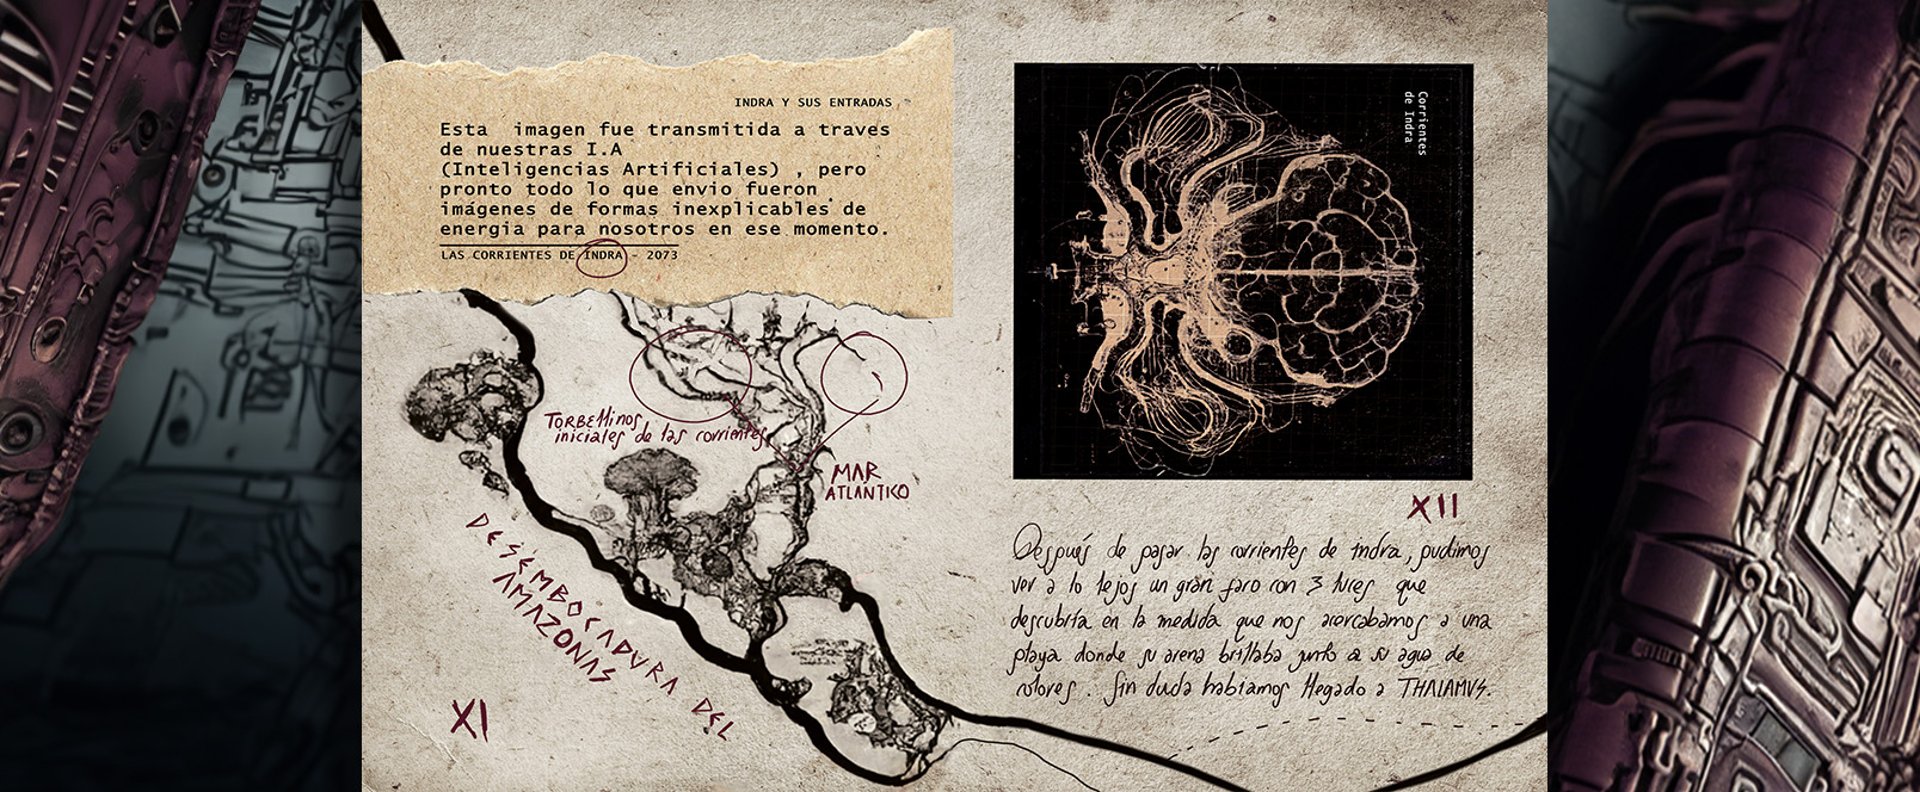 INDRA Y SUS ENTRADAS
Esta imagen fue transmitida a traves
de nuestras I.A
(Inteligencias Artificiales) , pero
pronto todo lo que envio fueron
imágenes de formas inexplicables de
energia para nosotros en ese momento.
LAS CORRIENTES DE INDRA - 2073
TORBEllinos
iniciales de las corrientes
MAR
ATLANTICO
DESEMBOCADURA DEL
AMAZONAS
XI
Corrientes
de Indra
XII
Después de pasar las corrientes de Indra, pudimos
ver a lo lejos un gran faro con 3 luces que
descubría en la medida que nos acercabamos a una
playa donde su arena brillaba junto a su agua de
colores. Sin duda habíamos llegado a THALAMUS.